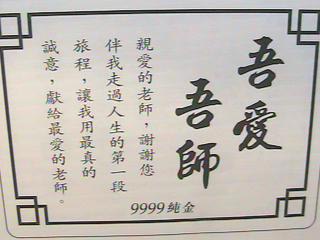 吾愛
吾師
親愛的老師，謝謝您
伴我走過人生的第一段
旅程，讓我用最真的
誠意，獻給最愛的老師。
9999純金